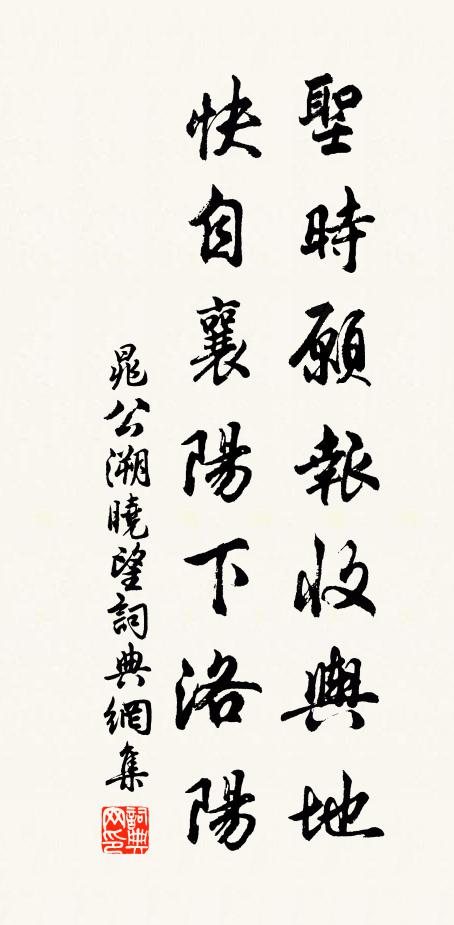 聖時願報收輿地
快自襄陽下洛陽
晁公溯曉望詞典網集
詞典网印